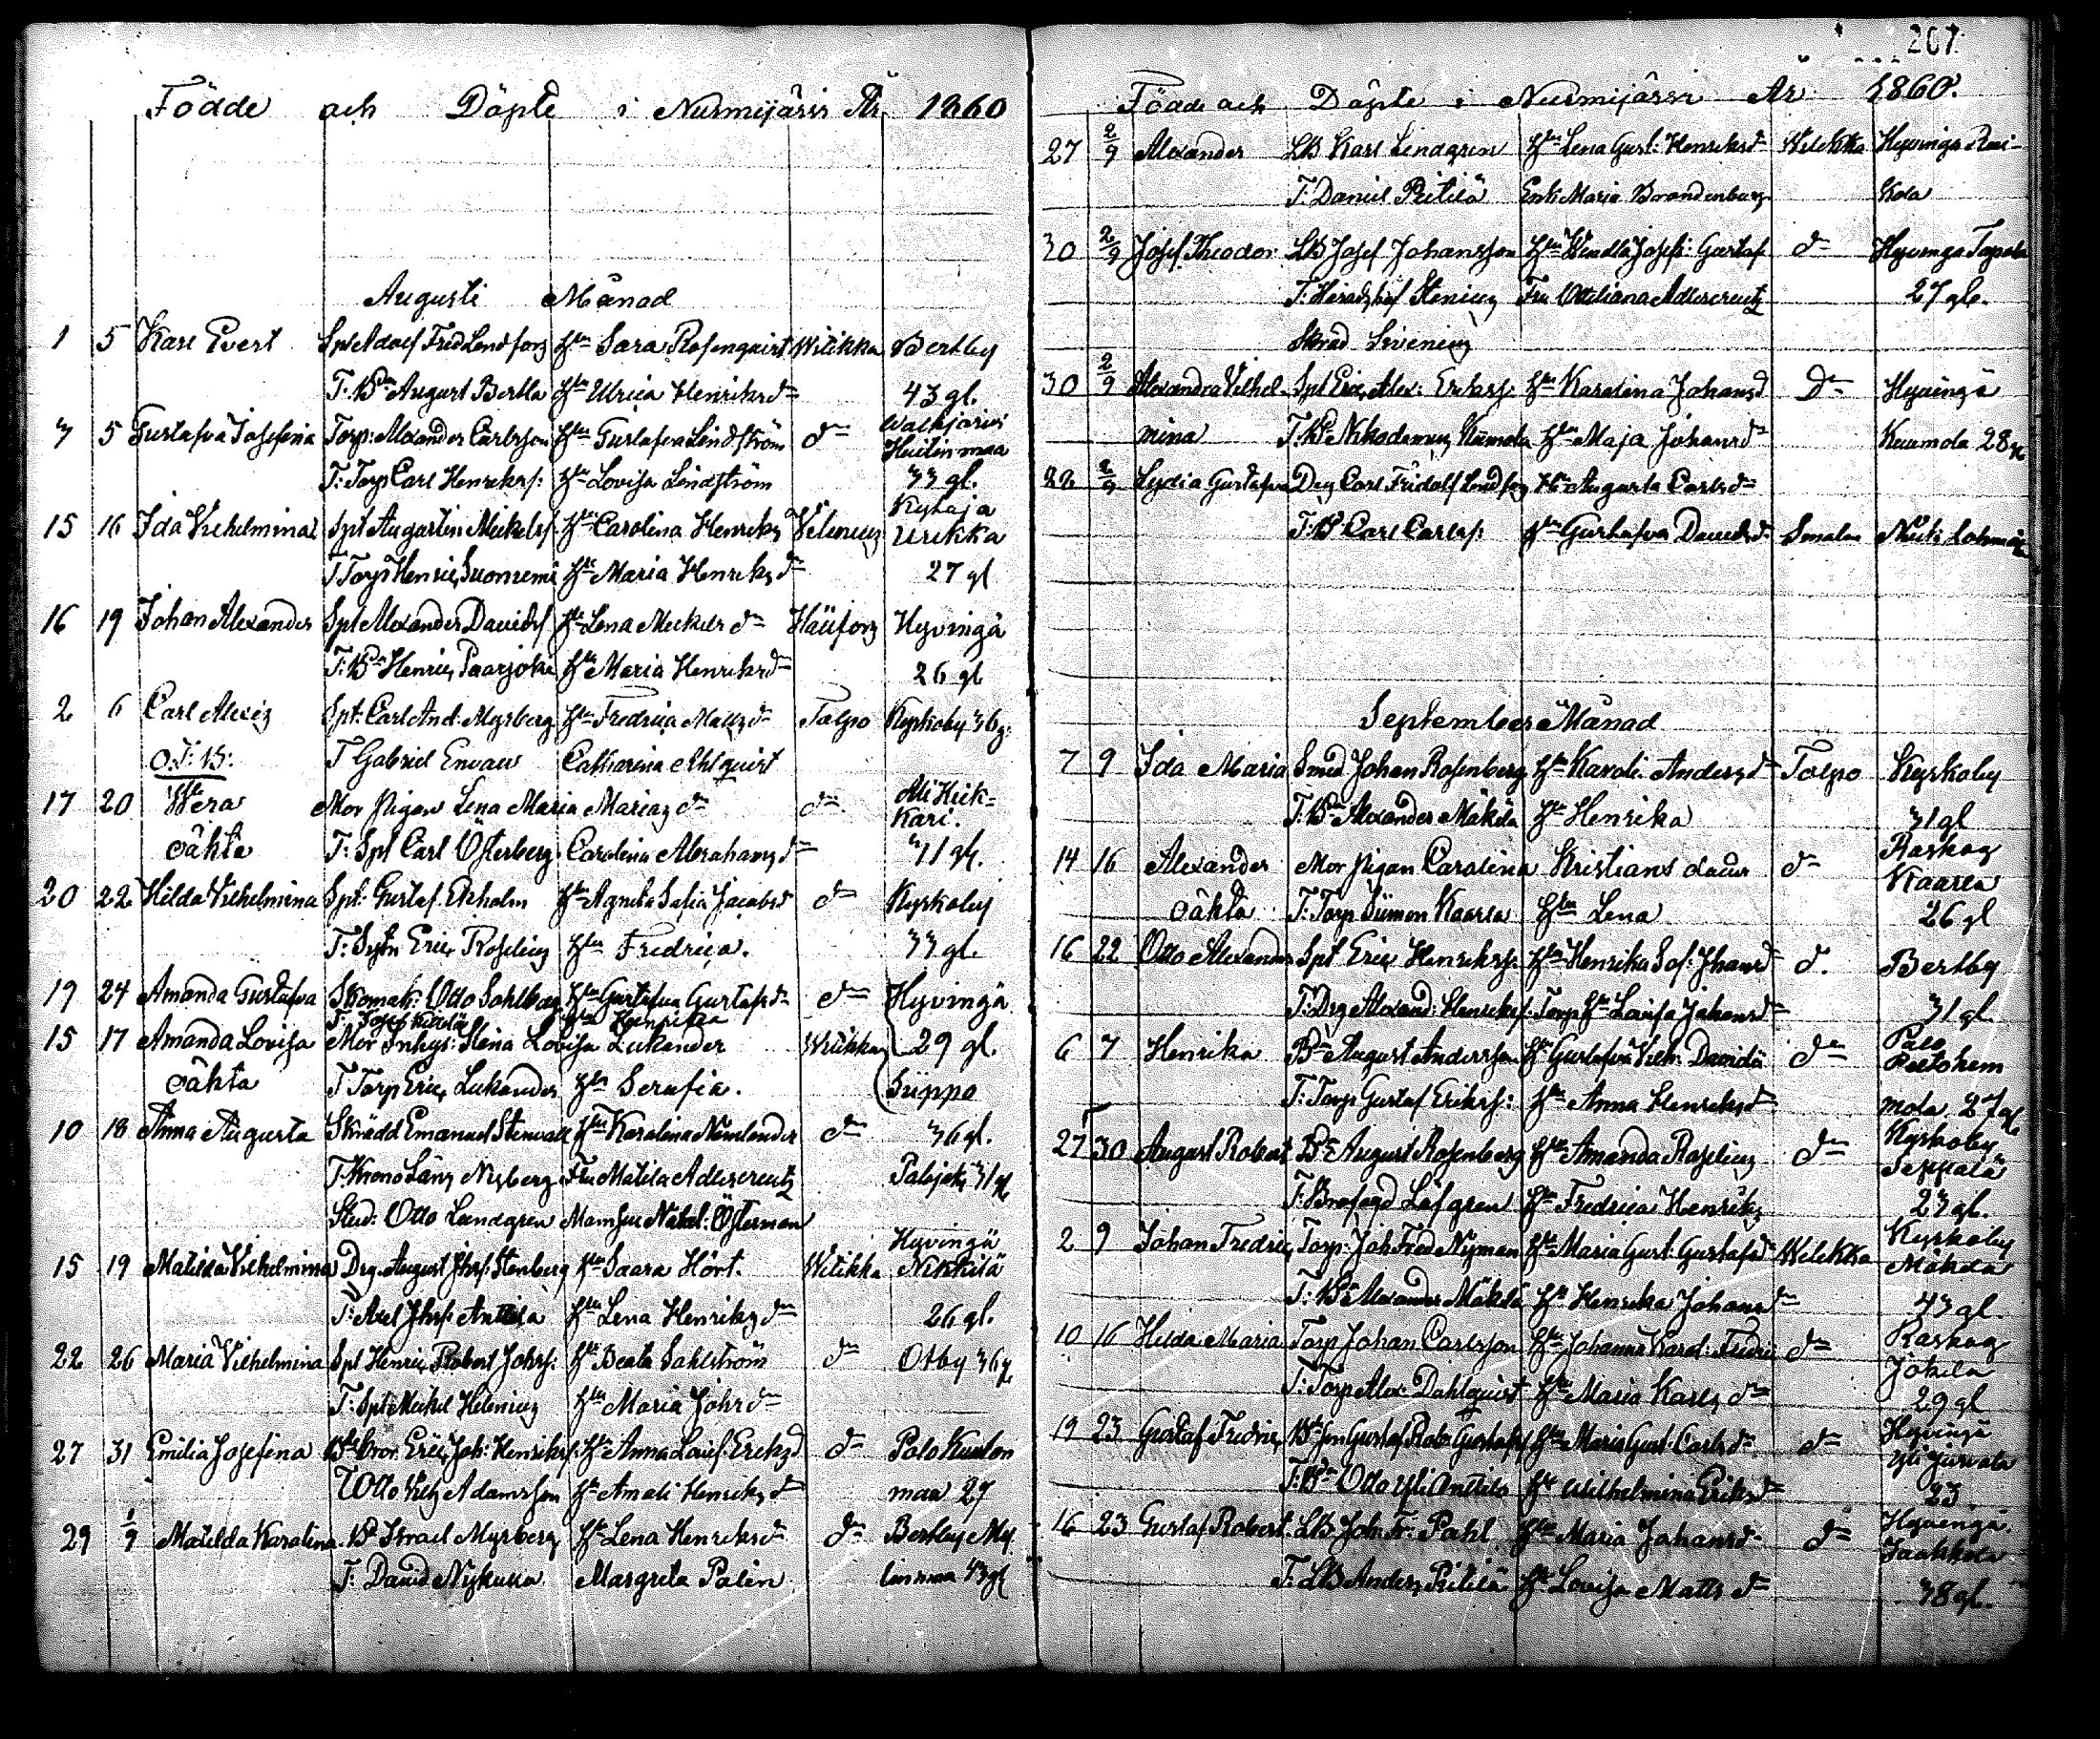 Födde och Döpte i Nurmijärvi År 1860
Augusti Månad
1 5 Karl Evert Spl Adolf Fred Lindfors Hu Sara Rosenqvist Witikka Bertby
T: Bd August Bertla Hu Ulrica Henriksdr 43 gl.
7 5 Gustafva Josefina Torp: Alexander Carlsson Hu Gustafva Lindström do Walkjärvi Huitinmaa
T: Torp Carl Henrikss: Hu Lovisa Lindström 33 gl.
15 16 Ida Vilhelmina Spl Augustin Mickelss Hu Carolina Henriks Kytäjä Urikka
T Torp Henric Suoniemi Hu Maria Henriksdr 27 gl
16 19 Johan Alexander Spl Alexander Davids Hu Lena Mickelsdr Häifors Hyvingä
T: Bd Henric Paarjoki Hu Maria Henriksdr 26 gl
2 6 Carl Alexis Spl: Carl And: Myrberg Hu Fredrica Mattsdr Talpo Kyrkoby 36 g.
O.T: B: T Gabriel Envall Catharina Ahlqvist
17 20 Wera Mor Pigan Lena Maria Mariasdr do Ali Kirkkari.
oäkta T: Spl Carl Österberg Carolina Abrahamsdr 41 gl.
20 22 Hilda Vilhelmina Spl: Gustaf Ekholm Hu Agneta Sofia Jacobsd do Kyrkoby
T: Sytn Eric Roselius Hu Fredrica. 33 gl.
19 24 Amanda Gustafva Skomak: Otto Sahlberg Hu Gustafva Gustafsdr do Hyvingä
T: Josef Hu Henrika
15 17 Amanda Lovisa Mor Inhys: Stina Lovisa Lukander 29 gl.
oäkta T Torp Eric Lukander Hu Serafia. Siippo
10 18 Anna Augusta Skrädd Emanuel Stenvall Hu Karolina Numlander do 36 gl.
T. Krono Läns Nyberg Fru Matilda Adlercreutz Palojoki 31 gl
Stud: Otto Lundgren Mamsell Natal: Österman
15 19 Matilda Vilhelmina Drg. August Jhss: Stenberg Hu Saara Hört. Witikka Hyvingä Nikkilä
T: Axel Jhss: Anttila Hu Lena Henriksdr 26 gl.
22 26 Maria Vilhelmina Spl Henric Robert Johss: Hu Beata Sahlström do Otby 36 gl
T: Spl Mickel Helenius Hu Maria Johsdr
27 31 Emilia Josefina Bd bror Eric Joh: Henrikss: Hu Anna Lovis: Ericsd do Palo
T Otto Vilh Adamsson Hu Amali Henriksdr maa 27
29 1/9 Matilda Karolina Bd Israel Myrberg Hu Lena Henriksdr do Bertby
T: David Nykulla Margreta Palin 43 gl
207
Födde och Döpte i Nurmijärvi År 1860.
27 2/9 Alexander LB Karl Lindgren Hu Lena Gust: Henriksdr Witikka Hyvinga
T. Daniel Pietilä Enk: Maria Brandenburg
30 2/9 Josef Theodor LB Josef Johansson Hu Wendla Josefs: Gustaf do Hyvinga Tapola
T: Häradshöf Stenius Fru Ottiliana Adlercreutz 27 gl.
30 2/9 Alexandra Vilhelmina Spl Eric Alex: Erikss: Hu Karolina Johansd Do Hyvingä
T. Bd Nikodemus Kuumola Hu Maja Johansdr Kuumola 28 gl
22 2/9 Lydia Gustafva Drg Carl Fridolf Lindfors Hu Augusta Carlsdr
T: Bd Carl Carlss: Hu Gustafva Davidsdr
September Månad
7 9 Ida Maria Smed Johan Rosenberg Hu Karoli: Andersdr Talpo Kyrkoby
T: Bd Alexander Mäkilä Hu Henrika 31 gl
14 16 Alexander Mor Pigan Carolina Kristians daur do Raskog Kaarla
oäkta T: Torp Simon Kaarla Hu Lena 26 gl
16 22 Otto Alexander Spl Eric Henrikss: Hu Henrika Sof: Jhansd d. Bertby
T: Drg Alexand: Henrikss: Torp Hu Lovisa Johansdr 31 gl
6 7 Henrika Bd August Andersson Hu Gustafva Vilh: Davids do Palo
T: Torp Gustaf Erikss: Hu Anna Henriksdr 27 gl
27 30 August Robert Bd August Rosenberg Hu Amanda Roselius do Kyrkoby Seppälä
T: Löfgren Hu Fredrica Henriks 23 gl.
2 9 Johan Fredric Torp: Joh Fred Nyman Hu Maria Gust: Gustafsdr Witikka Kyrkoby Mäkilä
T: Bd Alexander Mäkilä Hu Henrika Johansdr 43 gl.
10 16 Hilda Maria Torp Johan Carlsson Hu Johanna Karol: Fredri do Raskog Jokela
T: Torp Alex Dahlqvist Hu Maria Karlsdr 29 gl
19 23 Gustaf Fredric Bd son Gustaf Rob: Gustafss Hu Maria Gust: Carlsdr do Hyvingä
T: Bd Otto Yli Anttila Hu Wilhelmina Eriksdr 23
16 23 Gustaf Robert LB Joh: Fr. Pahl Hu Maria Johansdr do Hyvingä. Jaakkola
T: LB Anders Pietilä Hu Lovisa Mattsdr 38 gl.